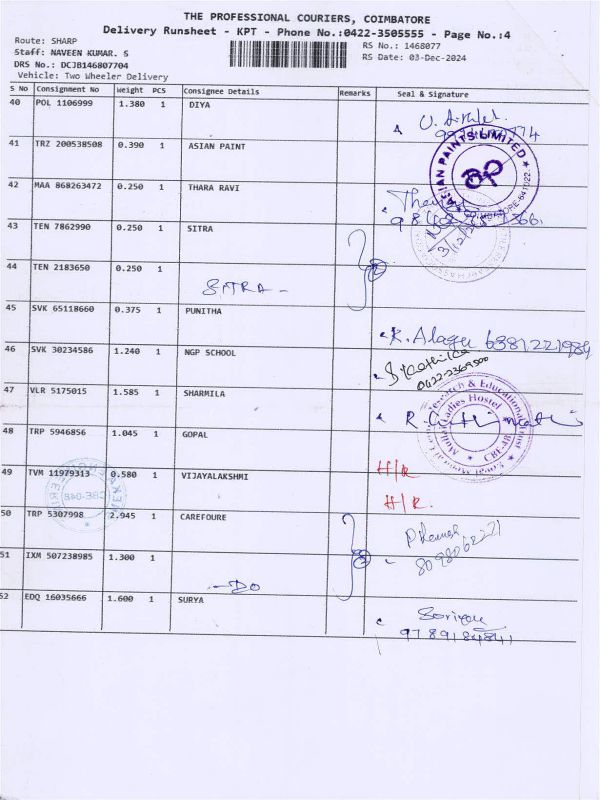 THE PROFESSIONAL COURIERS, COIMBATORE
Delivery Runsheet - KPT - Phone No.:0422-3505555 - Page No.:4
Route: SHARP
RS No.: 1468077
Staff: NAVEEN KUMAR. S
RS Date: 03-Dec-2024
DRS No.: DCJB146807704
Vehicle: Two Wheeler Delivery
S No Consignment No Weight PCS Consignee Details Remarks Seal & Signature
40 POL 1106999 1.380 1 DIYA
41 TRZ 200538508 0.390 1 ASIAN PAINT
ASIAN PAINTS LIMITED
ap
42 MAA 868263472 0.250 1 THARA RAVI
43 TEN 7862990 0.250 1 SITRA
3/12/24
44 TEN 2183650 0.250 1
SITRA -
45 SVK 65118660 0.375 1 PUNITHA
K. Alagu 6381221984
46 SVK 30234586 1.240 1 NGP SCHOOL
0422-2369500
47 VLR 5175015 1.585 1 SHARMILA
48 TRP 5946856 1.045 1 GOPAL
H/R
49 TVM 11979313 0.580 1 VIJAYALAKSHMI
H/R.
50 TRP 5307998 2.945 1 CAREFOURE
51 IXM 507238985 1.300 1
- DO
52 EDQ 16035666 1.600 1 SURYA